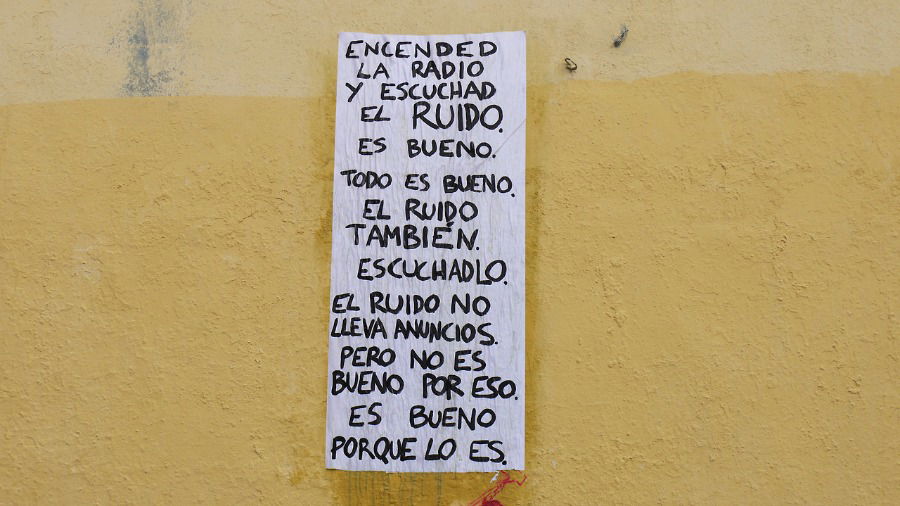 ENCENDED
LA RADIO
Y ESCUCHAD
EL RUIDO.
ES BUENO.
TODO ES BUENO.
EL RUIDO
TAMBIÉN.
ESCUCHADLO.
EL RUIDO NO
LLEVA ANUNCIOS.
PERO NO ES
BUENO POR ESO.
ES BUENO
PORQUE LO ES.